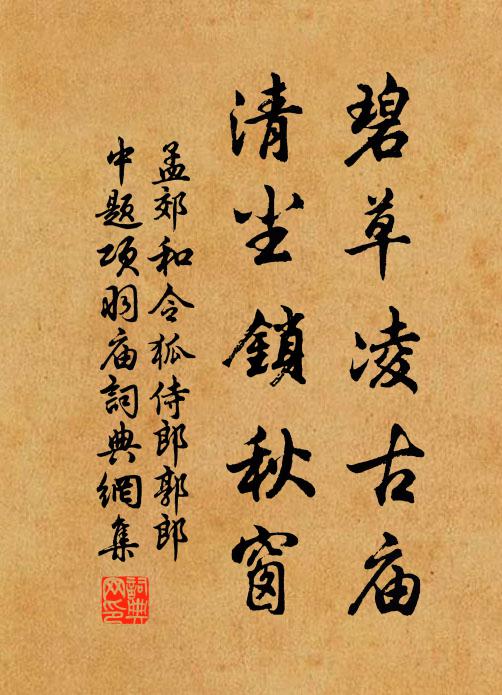 碧草凌古庙
清尘鎖秋窗
孟郊和令狐侍郎郭郎
中题项羽庙詞典網集